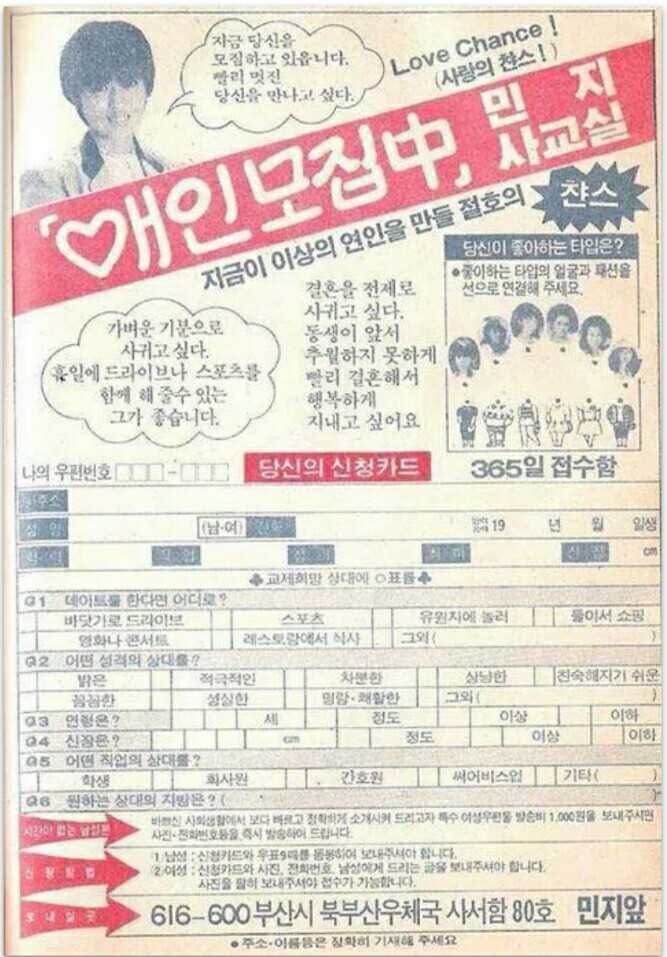 지금 당신을
모집하고 있읍니다.
빨리 멋진
당신을 만나고 싶다.
Love Chance !
(사랑의 챤스!)
「♡애인모집中」
민지
사교실
지금이 이상의 연인을 만들 절호의
챤스
당신이 좋아하는 타입은?
●좋아하는 타입의 얼굴과 패션을
선으로 연결해 주세요.
가벼운 기분으로
사귀고 싶다.
휴일에 드라이브나 스포츠를
함께 해 줄수 있는
그가 좋습니다.
결혼을 전제로
사귀고 싶다.
동생이 앞서
추월하지 못하게
빨리 결혼해서
행복하게
지내고 싶어요
나의 우편번호 □□□-□□□
당신의 신청카드
365일 접수함
(남·여) 19 년 월 일생
cm
♣ 교제희망 상대에 ○표를 ♣
Q1 데이트를 한다면 어디로?
바닷가로 드라이브 스포츠 유원지에 놀러 둘이서 쇼핑
영화나 콘서트 레스토랑에서 식사 그외( )
Q2 어떤 성격의 상대를?
밝은 적극적인 차분한 상냥한 친숙해지기 쉬운
꼼꼼한 성실한 명랑·쾌활한 그외( )
Q3 연령은? 세 정도 이상 이하
Q4 신장은? cm 정도 이상 이하
Q5 어떤 직업의 상대를?
학생 회사원 간호원 써어비스업 기타( )
Q6 원하는 상대의 지방은? ( )
시간이 없는 남성분
바쁘신 사회생활에서 보다 빠르고 정확하게 소개시켜 드리고자 특수 여성우편물 발송비 1,000원을 보내주시면
사진·전화번호등을 즉시 발송하여 드립니다.
신청방법
1. 남성 : 신청카드와 우표9매를 동봉하여 보내주셔야 합니다.
2. 여성 : 신청카드와 사진, 전화번호, 남성에게 드리는 글을 보내주셔야 합니다.
사진을 필히 보내주셔야 접수가 가능합니다.
보내실곳
616-600 부산시 북부산우체국 사서함 80호 민지앞
●주소·이름등은 정확히 기재해 주세요